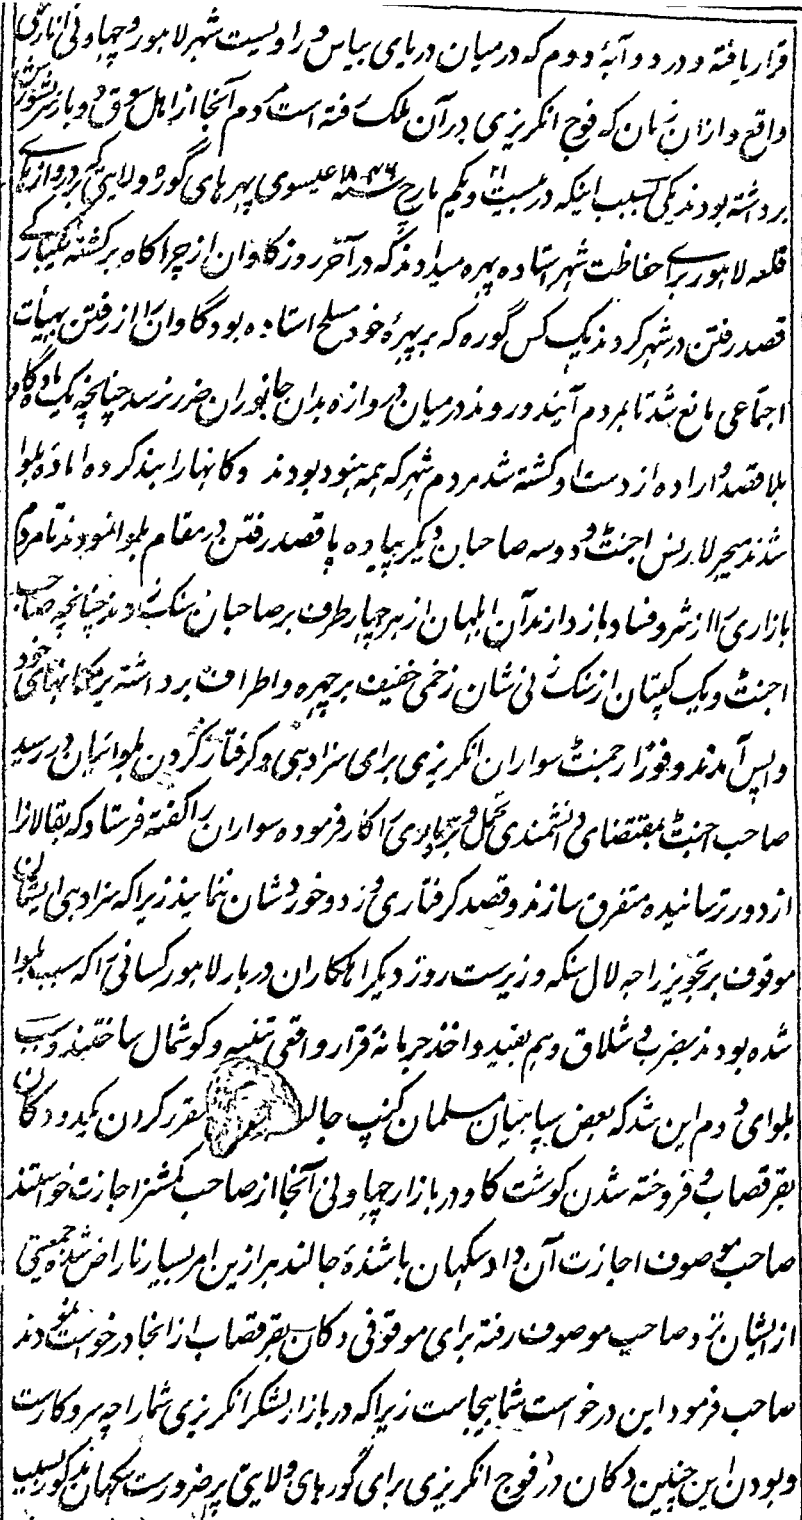 قرار یافته و در دوآبهٔ دوم که درمیان دریای بیاس و راویست شهر لاهور و چهاونی انارکلی
واقع و ازان زمان که فوج انگریزی در آن ملک رفته است مردم آنجا از اهل سوق دو بار سر شورش
برداشته بودند یکی بسبب اینکه در بیست و یکم مارچ سنه ۱۸۴۶ عیسوی پهرهای گوره ولایتی که بر دروازهای
قلعه لاهور برای حفاظت شهر استاده پهره میدادند که در آخر روز گاوان از چراگاه برگشته یکبارگی
قصد رفتن در شهر کردند یک کس گوره که بر پهرهٔ خود مسلح استاده بود گاوان را از رفتن بهیأت
اجتماعی مانع شد تا بمردم آیند و روند درمیان دروازه بدان جانوران ضرر نرسد چنانچه یک ماده گاو
بلا قصد و اراده از دست او کشته شد مردم شهر که همه هنود بودند دکانها را بند کرده اماده بلوا
شدند میجر لارنس اجنٹ و دو سه صاحبان دیگر پیاده پا قصد رفتن در مقام بلوا نمودند تا مردم
بازاری را از شر و فساد باز دارند آن ابلهان از هر چهار طرف بر صاحبان سنگ زدند چنانچه صاحب
اجنٹ و یک کپتان از سنگ زنی نشان زخمی خفیف بر چهره و اطراف برداشته بر مکانهای خود
واپس آمدند و فوراً رجمنٹ سواران انگریزی برای سزادهی و گرفتار کردن بلوائیان در رسید
صاحب اجنٹ بمقتضای دانشمندی تحمل و بردباری را کار فرموده سواران را گفته فرستاد که بقالان را
از دور ترسانیده متفرق سازند و قصد گرفتاری و زد و خورد شان ننمایند زیرا که سزادهی ایشان
موقوف بر تجویز راجه لال سنگه وزیرست روز دیگر اهلکاران دربار لاهور کسانی را که سبب بلوا
شده بودند بضرب و شلاق و هم بقید و اخذ جرمانه قرار واقعی تنبیه و گوشمال ساختند و سبب
بلوای دوم این شد که بعض سپاهیان مسلمان کنپ جالندهر مقرر کردن یکدو دکان
بقر قصاب و فروخته شدن گوشت گاو در بازار چهاونی آنجا از صاحب کمشنر اجازت خواستند
صاحب موصوف اجازت آن داد سکهان باشندهٔ جالندهر ازین امر بسیار ناراض شده جمعیتی
از ایشان نزد صاحب موصوف رفته برای موقوفی دکان بقر قصاب از انجا درخواست نمودند
صاحب فرمود این درخواست شما بیجاست زیرا که در بازار لشکر انگریزی شما را چه سروکارست
و بودن این چنین دکان در فوج انگریزی برای گورهای ولایتی پر ضرورست سکهان مذکور بسبب